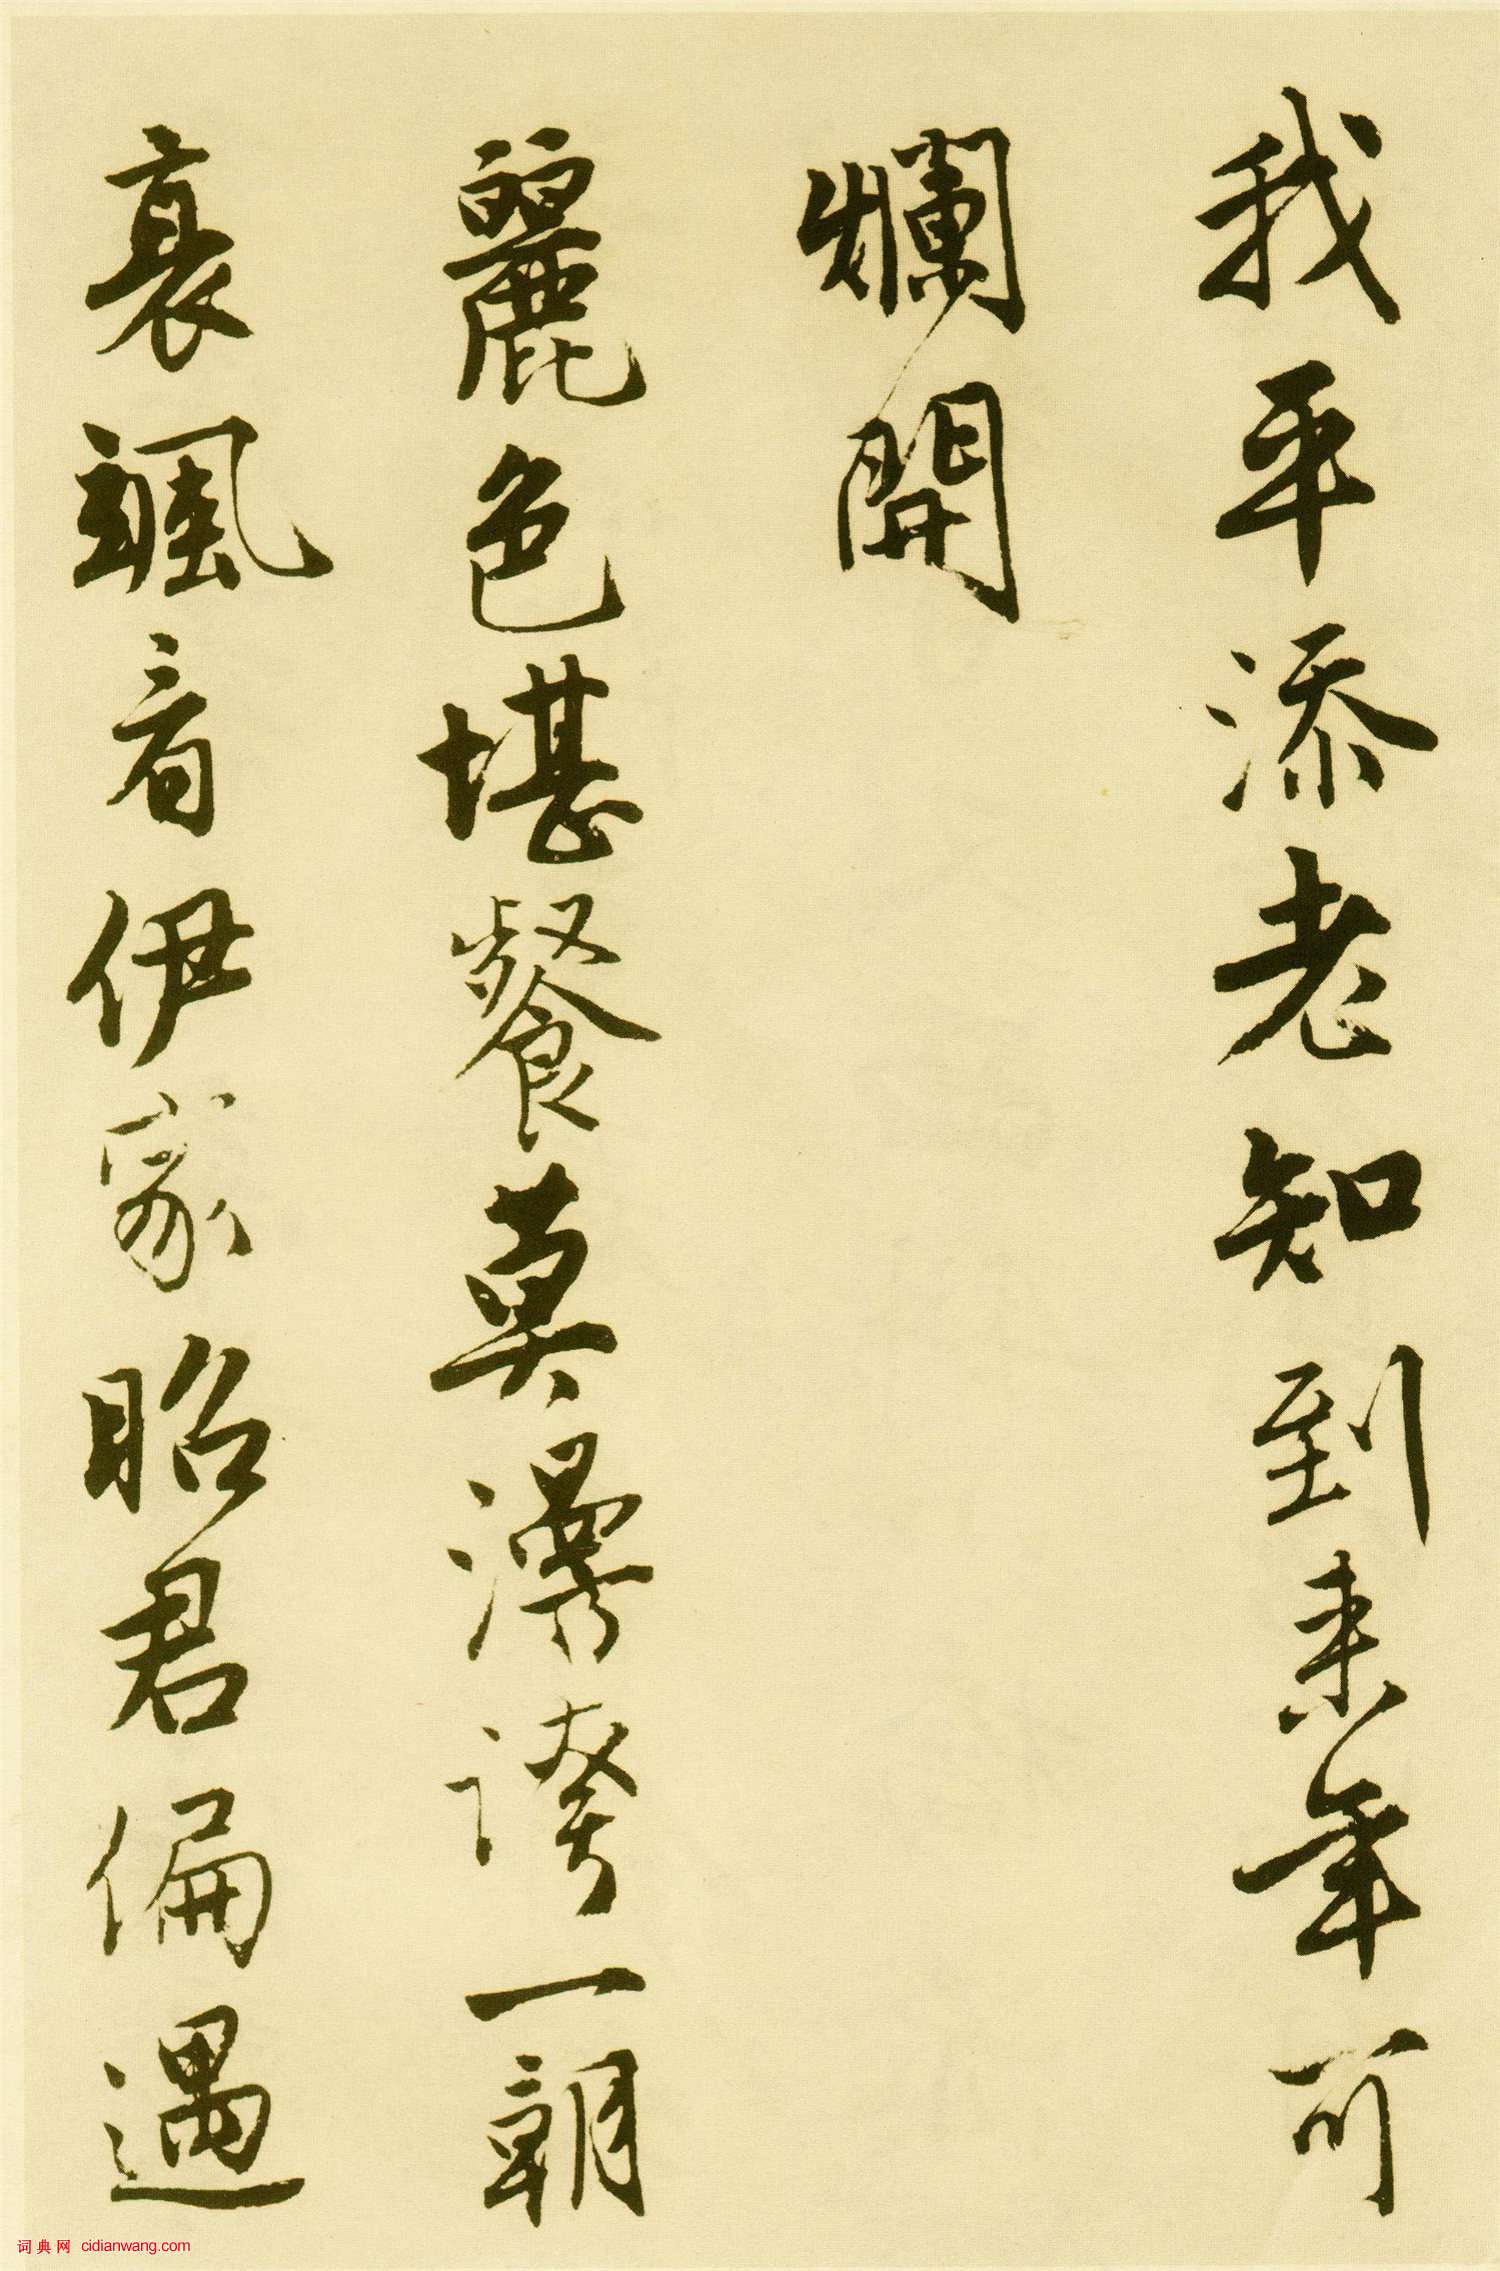 我平添老知到来年可
爛開
麗色堪餐莫漫誇一朝
衰颯音伊家昭君偏遇
词典网 cidianwang.com